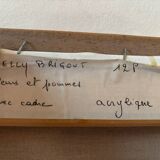 ELLY BRIGOUT 12P
leurs et pommes
vec cadre acrylique